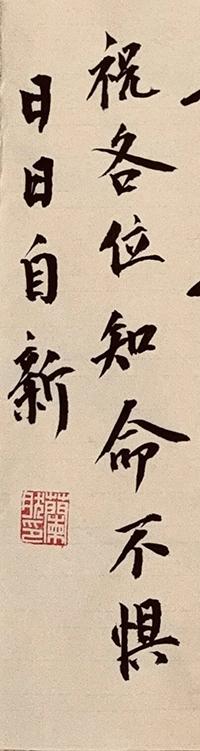 祝各位知命不惧
日日自新